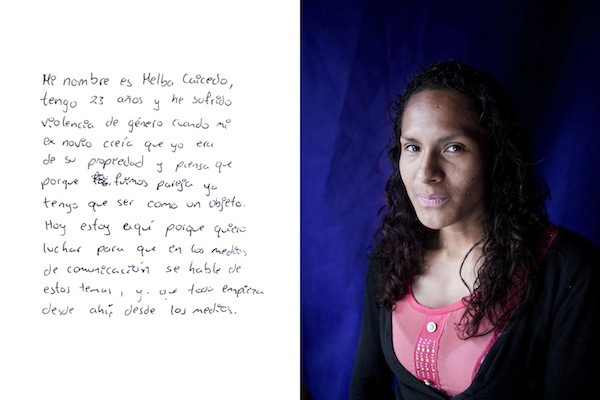 Mi nombre es Melba Caicedo,
tengo 23 años y he sufrido
violencia de género cuando mi
ex novio creía que yo era
de su propiedad y piensa que
porque fuimos pareja ya
tengo que ser como un objeto.
Hoy estoy aquí porque quiero
luchar para que en los medios
de comunicación se hable de
estos temas, y que todo empieza
desde ahí, desde los medios.